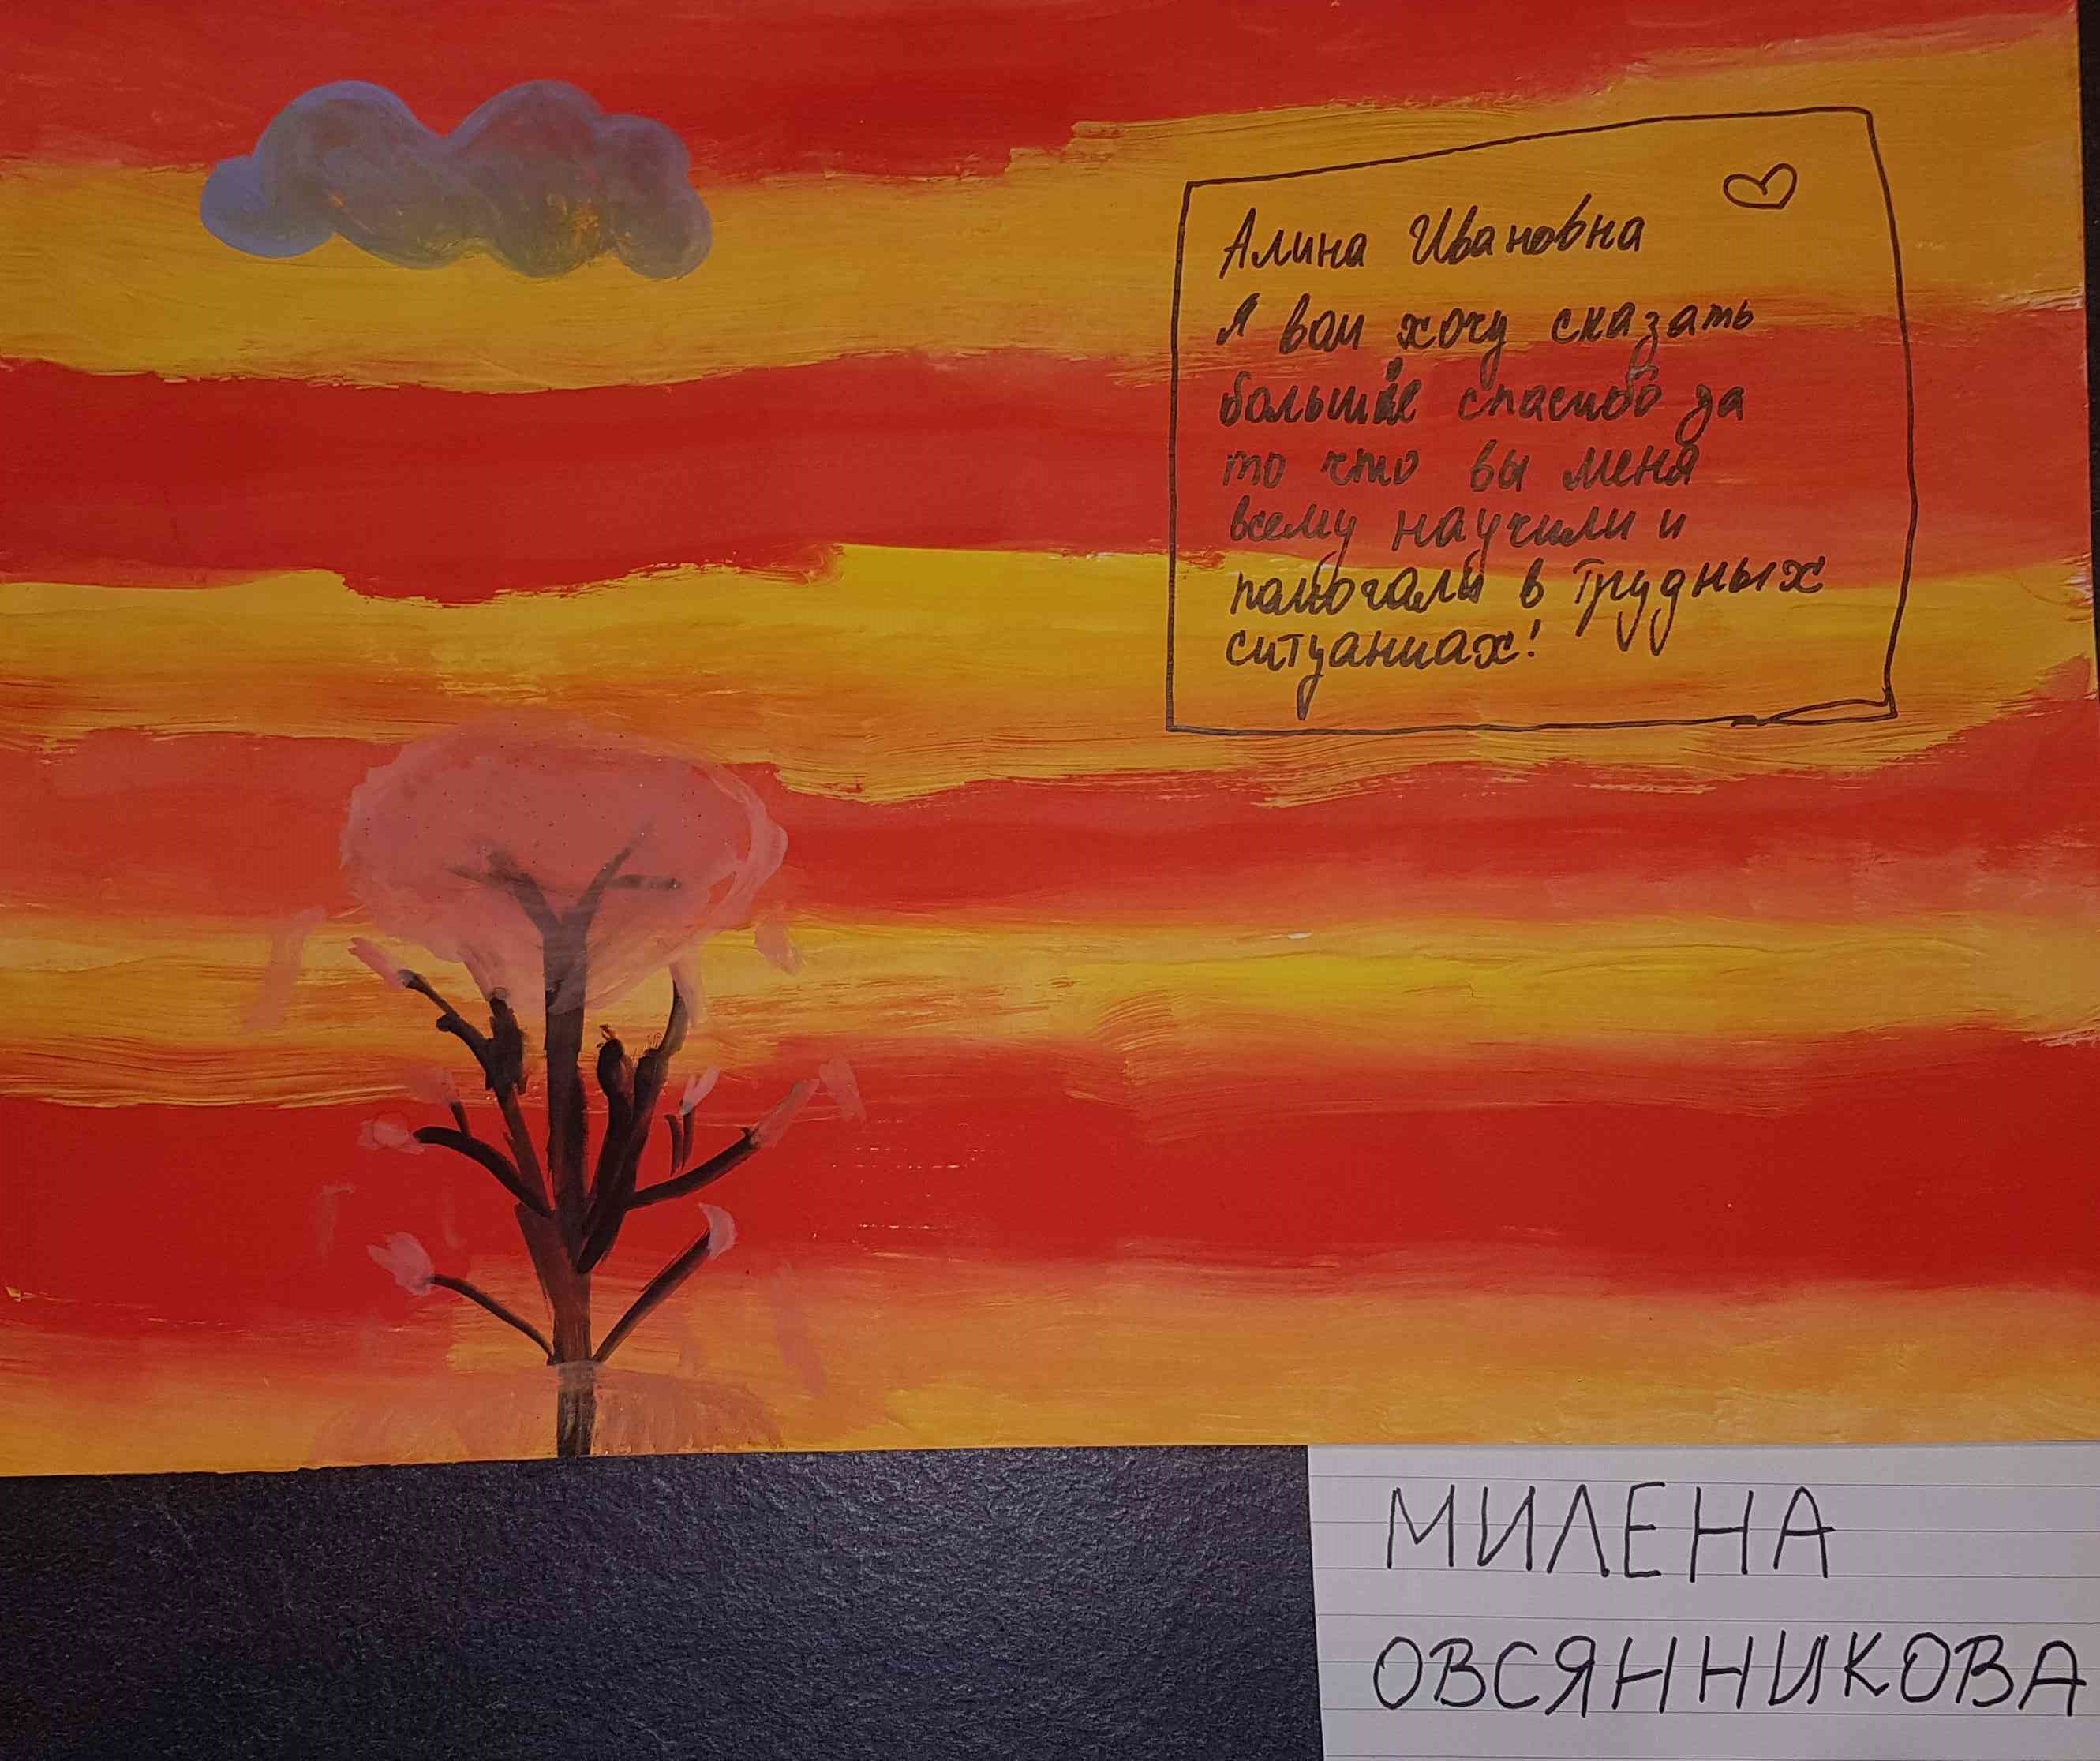 Алина Ивановна
Я вам хочу сказать
большое спасибо за
то что вы меня
всему научили и
помогали в трудных
ситуаниах!
МИЛЕНА
ОВСЯННИКОВА